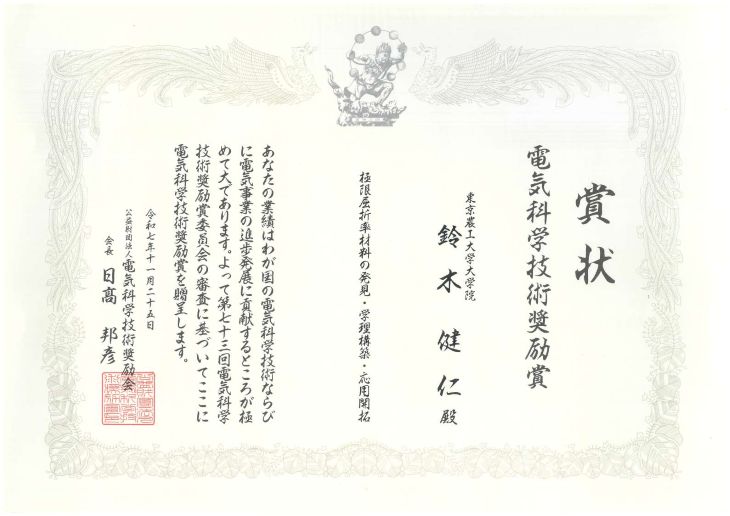 賞状
電気科学技術奨励賞
東京農工大学大学院
鈴木健仁殿
極限屈折率材料の発見・学理構築・応用開拓
あなたの業績はわが国の電気科学技術ならび
に電気事業の進歩発展に貢献するところが極
めて大であります。よって第七十三回電気科学
技術奨励賞委員会の審査に基づいてここに
電気科学技術奨励賞を贈呈します。
令和七年十一月二十五日
公益財団法人電気科学技術奨励会
会長日髙邦彦